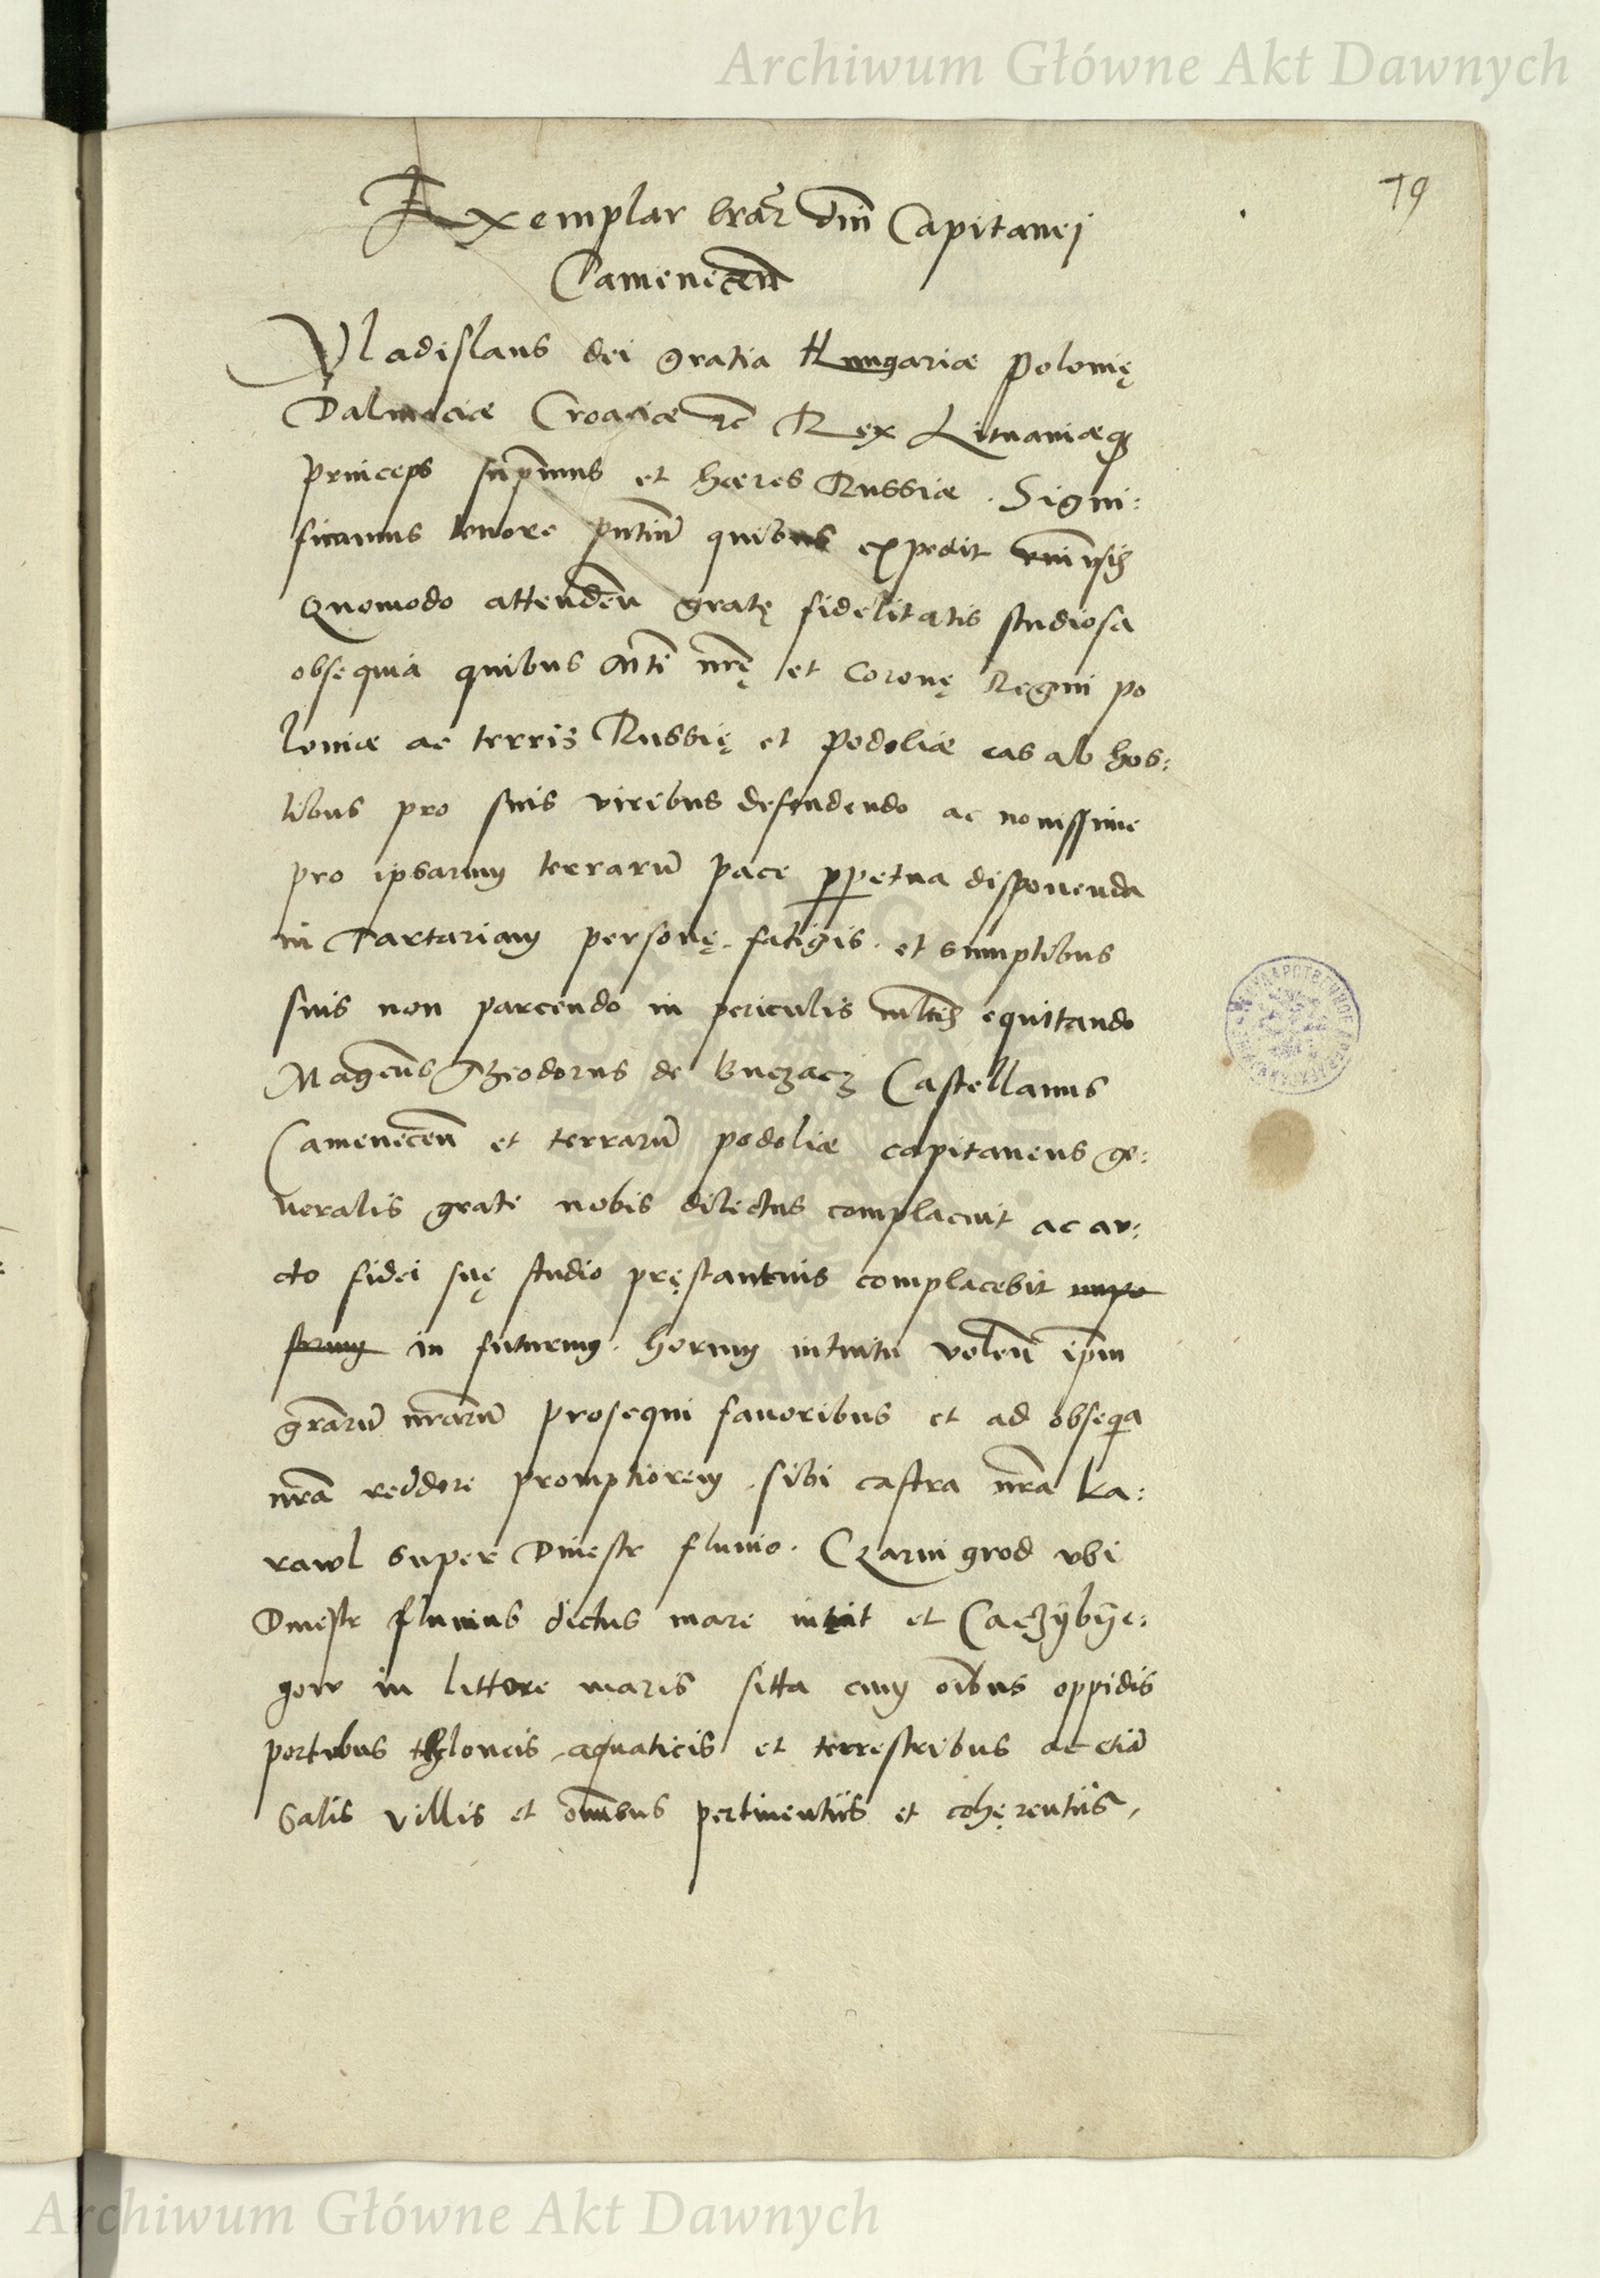 Archiwum Główne Akt Dawnych
79
Exemplar lrar̄ dn̄i Capitanej
Camenecen̄
Vladislaus dei gratia Hungariæ Polonię
Dalmaciæ Croaciæ zc Rex Lituaniæq3
princeps supm̄us et hæres Russiæ. Signi:
ficamus tenore pn̄tiū quibus expedit vniv̄sis
Quomodo attenden̄ gratę fidelitatis studiosa
obsequia quibus M̄ti nr̄ę et Coronę Regni po
loniæ ac terris Russię et Podoliæ eas ab hos:
tibus pro suis viribus defendendo ac novissime
pro ipsarum terrarū pace ꝑpetua disponenda
in Tartariam personę. fatigis. et sumptibus
suis non parcendo in periculis ml̄tis equitando
Magcūs Theodorus de buczacz Castellanus
Camenecen̄ et terrarū podoliæ capitaneus ge:
neralis grate nobis dilectus complacuit ac ar:
cto fidei suę studio pręstantius complacebit
in futurum. horum intuitu volen̄ ip̄m
grār̄ū nr̄ārū prosequi favoribus et ad obseqa
nr̄a reddere promptiorem. sibi castra nr̄a ka:
rawl super Dniestr fluvio. Czarni grod vbi
Dniestr fluvius dictus mare intrat et Caczybye:
gow in littore maris sitta cum oīb̄us oppidis
portubus theloneis aquaticis et terrestribus ac etiā
Salis villis et omībus pertinentiis et cohęrentiis,
Archiwum Główne Akt Dawnych